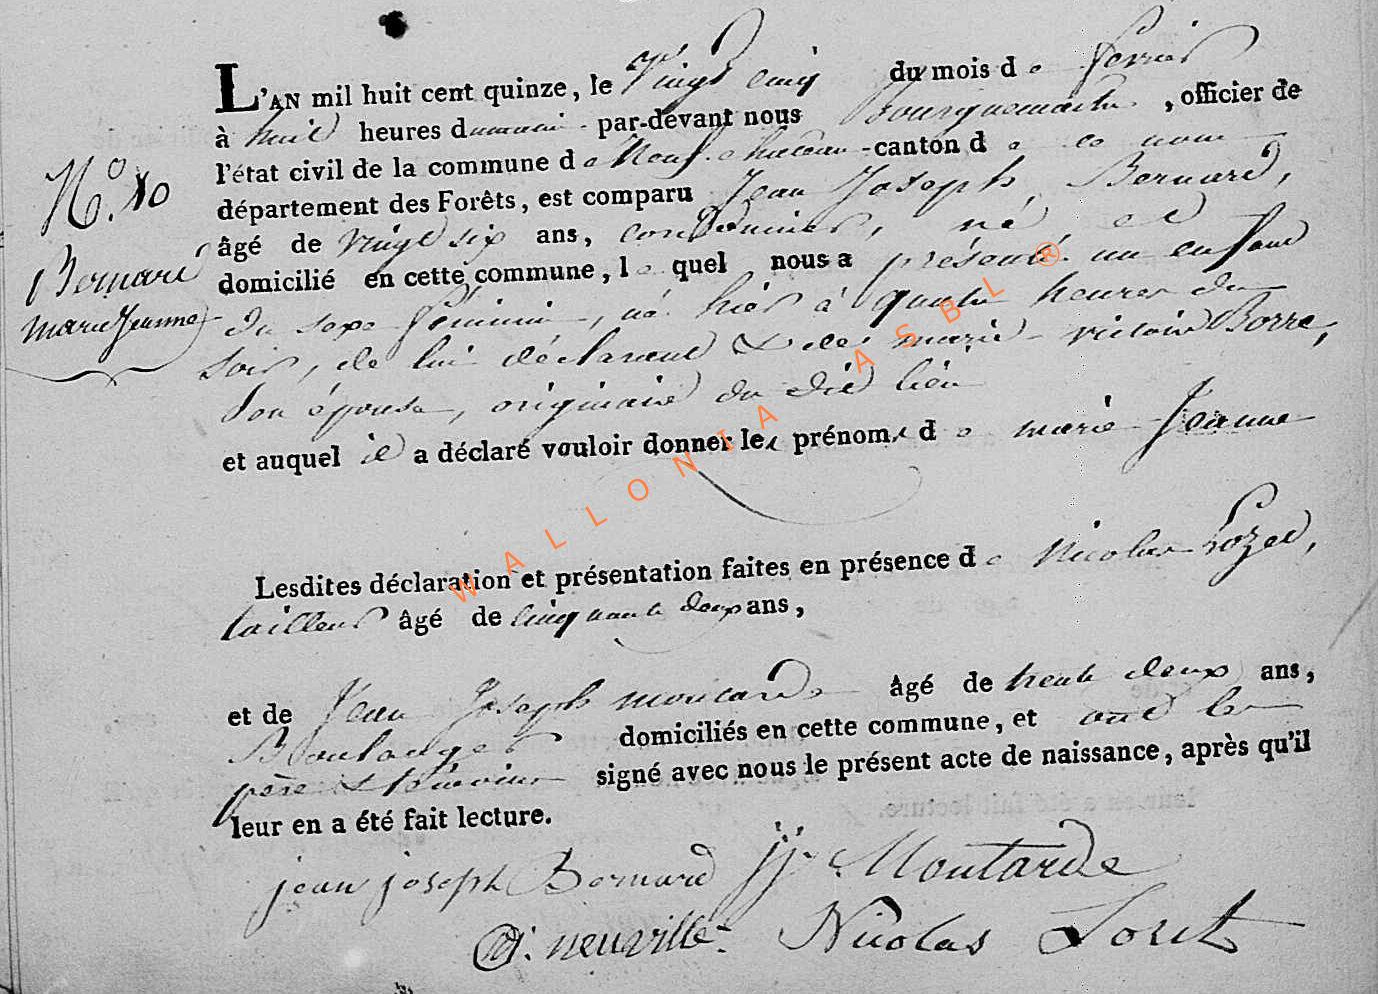 L'AN mil huit cent quinze, le Vingt cinq du mois de fevrier
à huit heures du matin par-devant nous Bourguemaitre, officier de
l'état civil de la commune de Neufchateau canton de ce nom
département des Forêts, est comparu Jean Joseph Bernard,
âgé de vingt six ans, cordonnier, né et
domicilié en cette commune, lequel nous a présenté un enfant
du sexe féminin, né hier à quatre heures du
soir, de lui déclarant & de marie victoire Borre,
son épouse, originaire du dit lieu
et auquel il a déclaré vouloir donner les prénoms de marie Jeanne
N.º 10
Bernard
marie Jeanne
Lesdites déclaration et présentation faites en présence de Nicolas
tailleur âgé de cinquante deux ans,
et de Jean Joseph moutarde âgé de trente deux ans,
Boulanger domiciliés en cette commune, et ont les
père & témoins signé avec nous le présent acte de naissance, après qu'il
leur en a été fait lecture.
jean joseph Bernard jj. Moutarde
neuville Nicolas Loret
WALLONIA ASBL ®